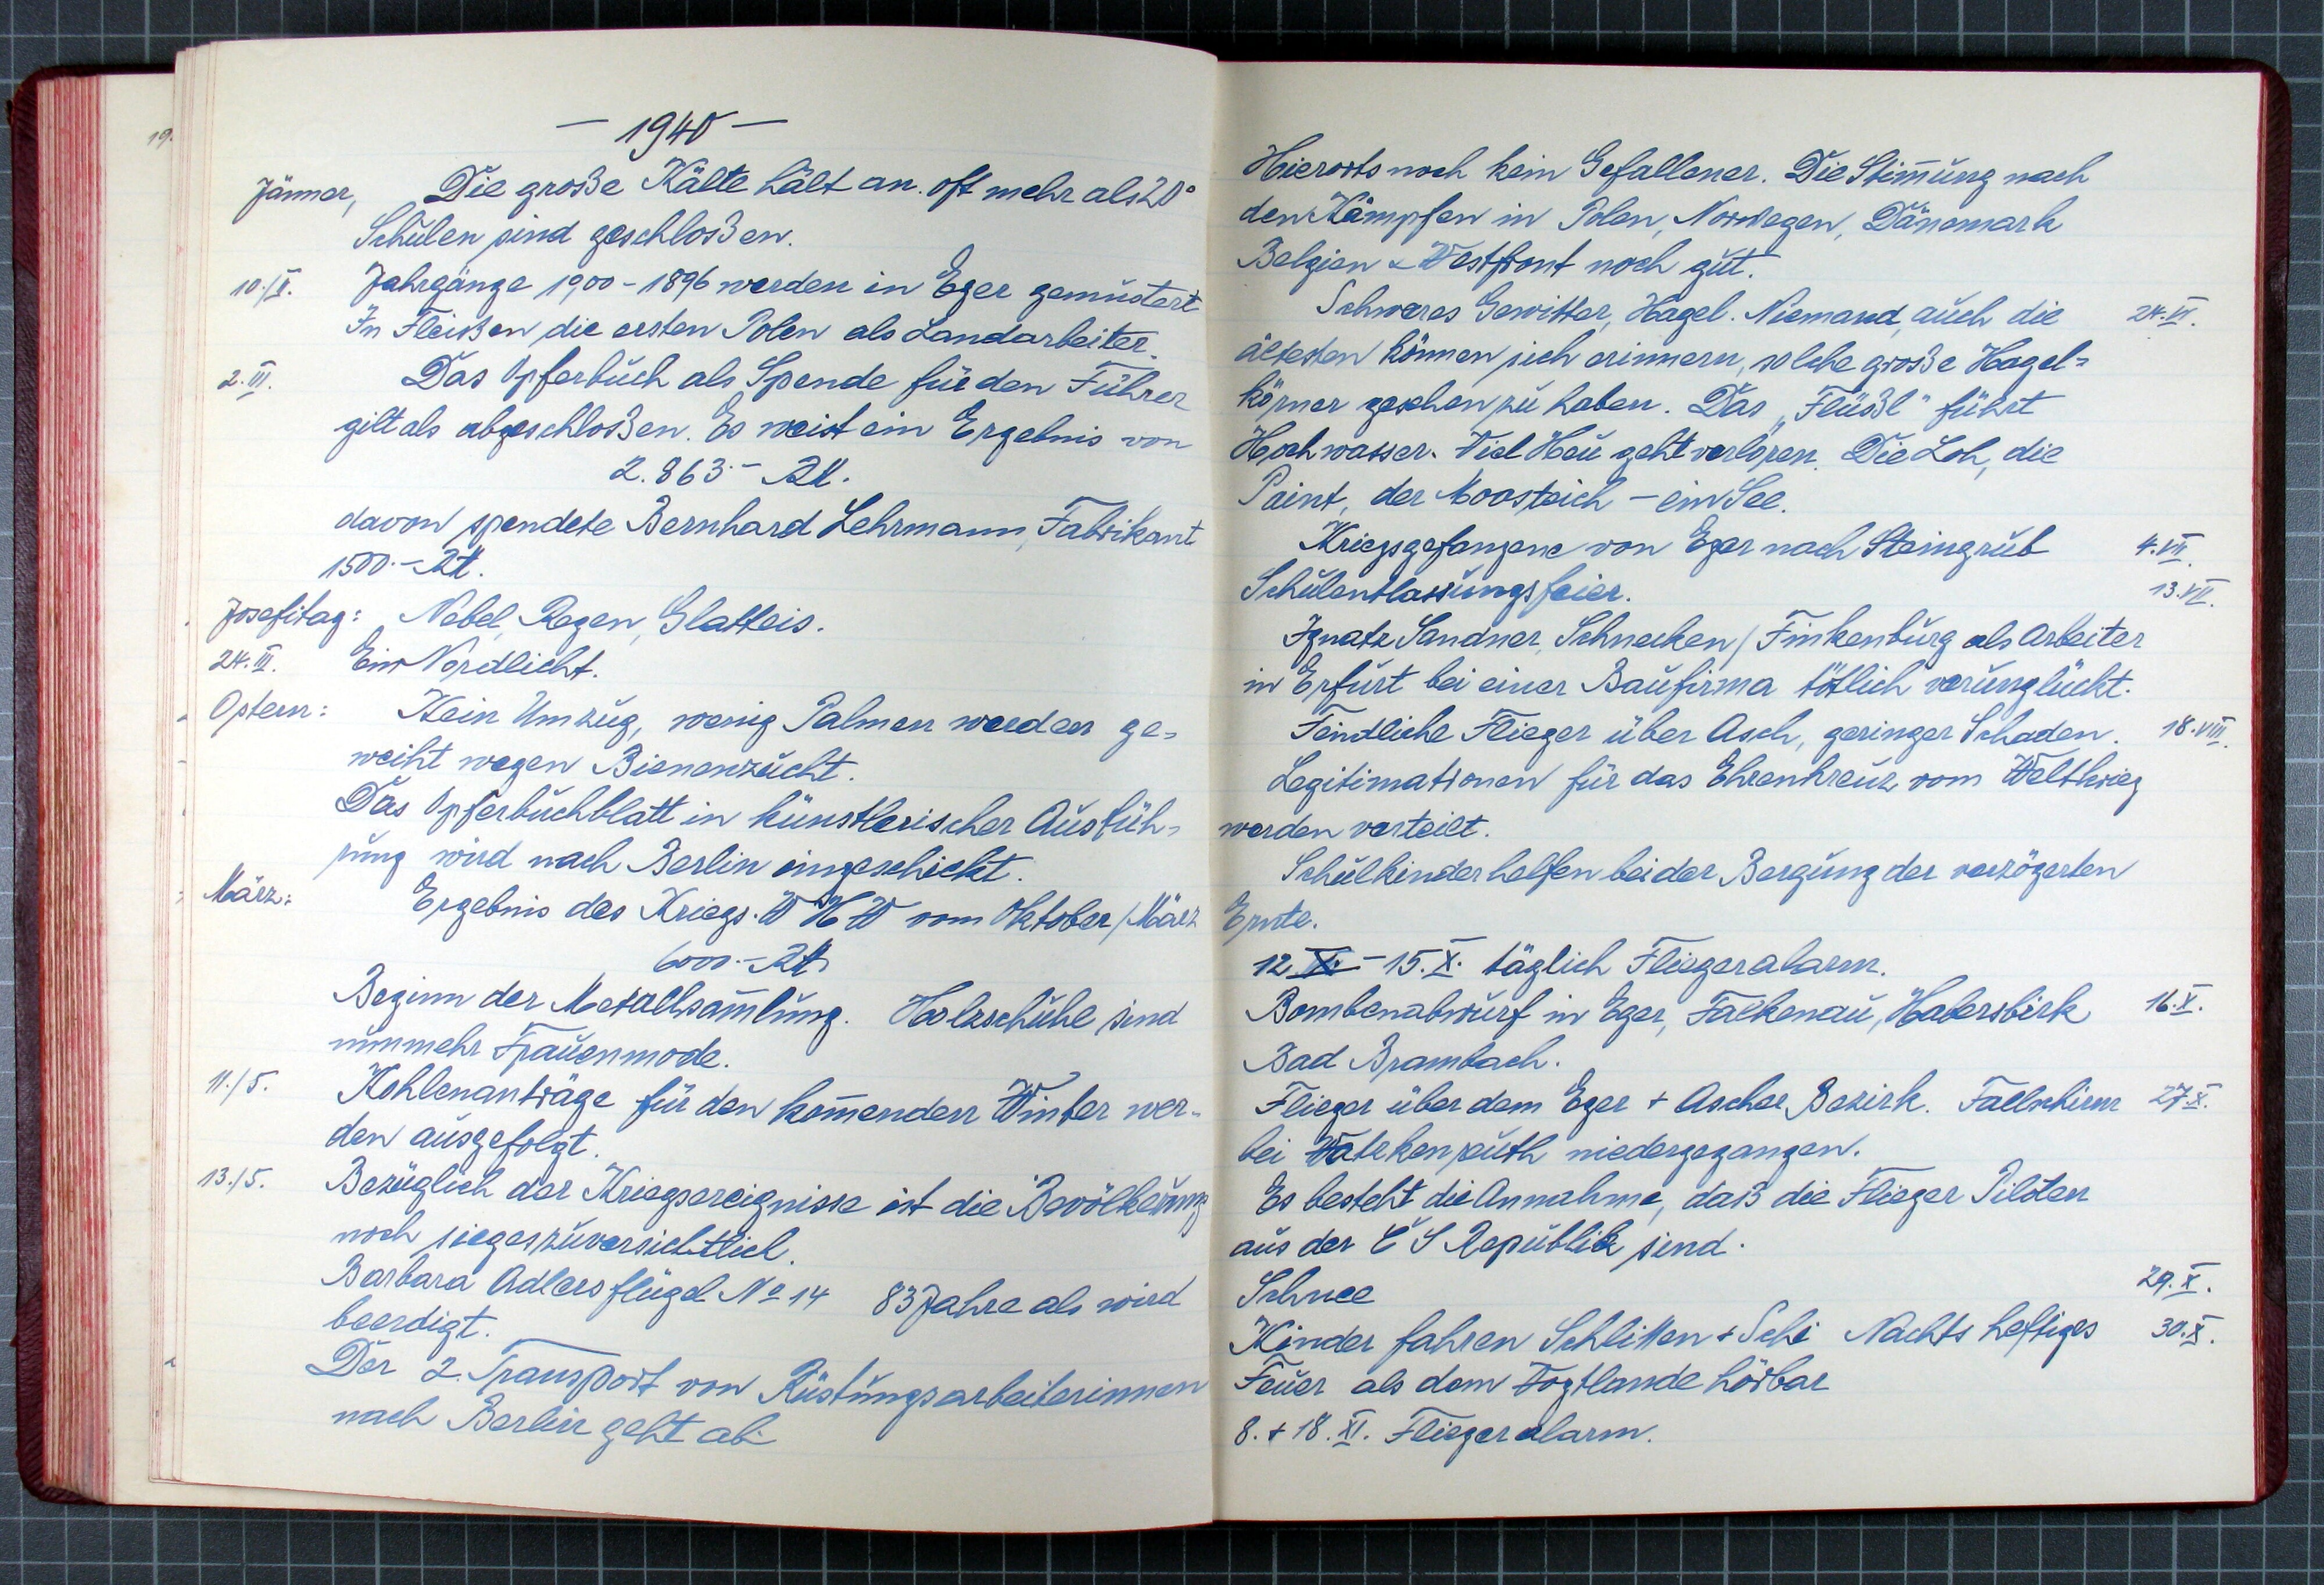 19.
— 1940 —
Jänner, Die große Kälte hält an. oft mehr als 20°
Schulen sind geschloßen.
10./II. Jahrgänge 1900 - 1896 werden in Eger gemustert
In Fleißen die ersten Polen als Landarbeiter.
2. III. Das Opferbuch als Spende für den Führer
gilt als abgeschloßen. Es weist ein Ergebnis von
2.863.- RM.
davon spendete Bernhard Lehrmann, Fabrikant
1500.- RM.
Josefitag: Nebel, Regen, Glatteis.
24. III. Ein Nordlicht.
Ostern: Kein Umzug, wenig Palmen werden ge=
weiht wegen Bienenzucht.
Das Opferbuchblatt in künstlerischer Ausfüh=
rung wird nach Berlin eingeschickt.
März: Ergebnis des Kriegs. W H W vom Oktober/März
6000.- RM
Beginn der Metallsam̄lung. Holzschuhe sind
nunmehr Frauenmode.
11./5. Kohlenanträge für den kom̄enden Winter wer=
den ausgefolgt.
13./5. Bezüglich der Kriegsereignisse ist die Bevölkerung
noch siegeszuversichtlich.
Barbara Adlersflügel No 14 83 Jahre als wird
beerdigt.
Der 2. Transport von Rüstungsarbeiterinnen
nach Berlin geht ab.
Hierorts noch kein Gefallener. Die Stim̄ung nach
den Kämpfen in Polen, Norwegen, Dänemark
Belgien & Westfront noch gut.
Schweres Gewitter, Hagel. Niemand, auch die 24. VI.
ältesten können sich erinnern, solche große Hagel=
körner gesehen zu haben. Das „Flüßl" führt
Hochwasser. Viel Heu geht verloren. Die Loh, die
Point, der Moosteich – ein See.
Kriegsgefangene von Eger nach Steingrub 4. VII.
Schulentlassungsfeier. 13. VII.
Ignatz Sandner, Schnecken / Finkenburg als Arbeiter
in Erfurt bei einer Baufirma tötlich verunglückt.
Feindliche Flieger über Asch, geringer Schaden. 18. VIII.
Legitimationen für das Ehrenkreuz vom Weltkrieg
werden verteilt.
Schulkinder helfen bei der Bergung der verzögerten
Ernte.
12. X. - 15. X. täglich Fliegeralarm.
Bombenabwurf in Eger, Falkenau, Habersbirk 16. X.
Bad Brambach.
Flieger über dem Eger + Ascher Bezirk. Fallschirm 27. X.
bei Watzkenreuth niedergegangen.
Es besteht die Annahme, daß die Flieger Piloten
aus der Č S Republik sind.
Schnee 29. X.
Kinder fahren Schlitten + Schi Nachts heftiges 30. X.
Feuer als dem Vogtlande hörbar
8. + 18. XI. Fliegeralarm.